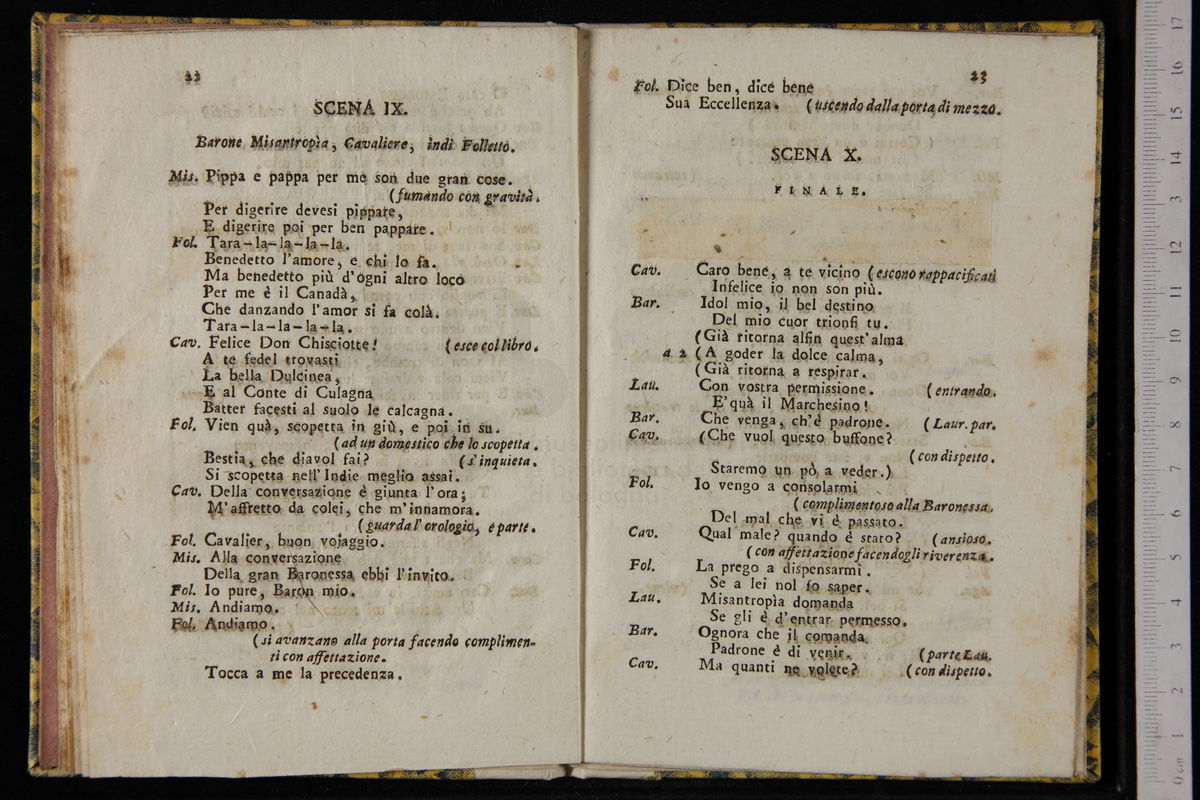 22
SCENA IX.
Barone Misantropìa, Cavaliere, indi Folletto.
Mis. Pippa e pappa per me son due gran cose.
(fumando con gravità.
Per digerire devesi pippare,
E digerire poi per ben pappare.
Fol. Tara-la-la-la-la.
Benedetto l'amore, e chi lo fa.
Ma benedetto più d'ogni altro loco
Per me è il Canadà,
Che danzando l'amor si fa colà.
Tara-la-la-la-la.
Cav. Felice Don Chisciotte! (esce col libro.
A te fedel trovasti
La bella Dulcinea,
E al Conte di Culagna
Batter facesti al suolo le calcagna.
Fol. Vien quà, scopetta in giù, e poi in su.
(ad un domestico che lo scopetta.
Bestia, che diavol fai? (s'inquieta.
Si scopetta nell'Indie meglio assai.
Cav. Della conversazione è giunta l'ora;
M'affretto da colei, che m'innamora.
(guarda l'orologio, e parte.
Fol. Cavalier, buon vojaggio.
Mis. Alla conversazione
Della gran Baronessa ebbi l'invito.
Fol. Io pure, Baron mio.
Mis. Andiamo.
Fol. Andiamo.
(si avanzano alla porta facendo complimen-
ti con affettazione.
Tocca a me la precedenza.
23
Fol. Dice ben, dice bene
Sua Eccellenza. (uscendo dalla porta di mezzo.
SCENA X.
FINALE.
Cav. Caro bene, a te vicino (escono rappacificati
Infelice io non son più.
Bar. Idol mio, il bel destino
Del mio cuor trionfi tu.
(Già ritorna alfin quest'alma
a 2 (A goder la dolce calma,
(Già ritorna a respirar.
Lau. Con vostra permissione. (entrando.
E' quà il Marchesino!
Bar. Che venga, ch'è padrone. (Laur. par.
Cav. (Che vuol questo buffone?
(con dispetto.
Staremo un pò, a veder.)
Fol. Io vengo a consolarmi
(complimentoso alla Baronessa.
Del mal che vi è passato.
Cav. Qual male? quando è stato? (ansioso.
(con affettazione facendogli riverenza.
Fol. La prego a dispensarmi.
Se a lei nol fo saper.
Lau. Misantropìa domanda
Se gli è d'entrar permesso.
Bar. Ognora che il comanda
Padrone è di venir. (parte Lau.
Cav. Ma quanti ne volete? (con dispetto.